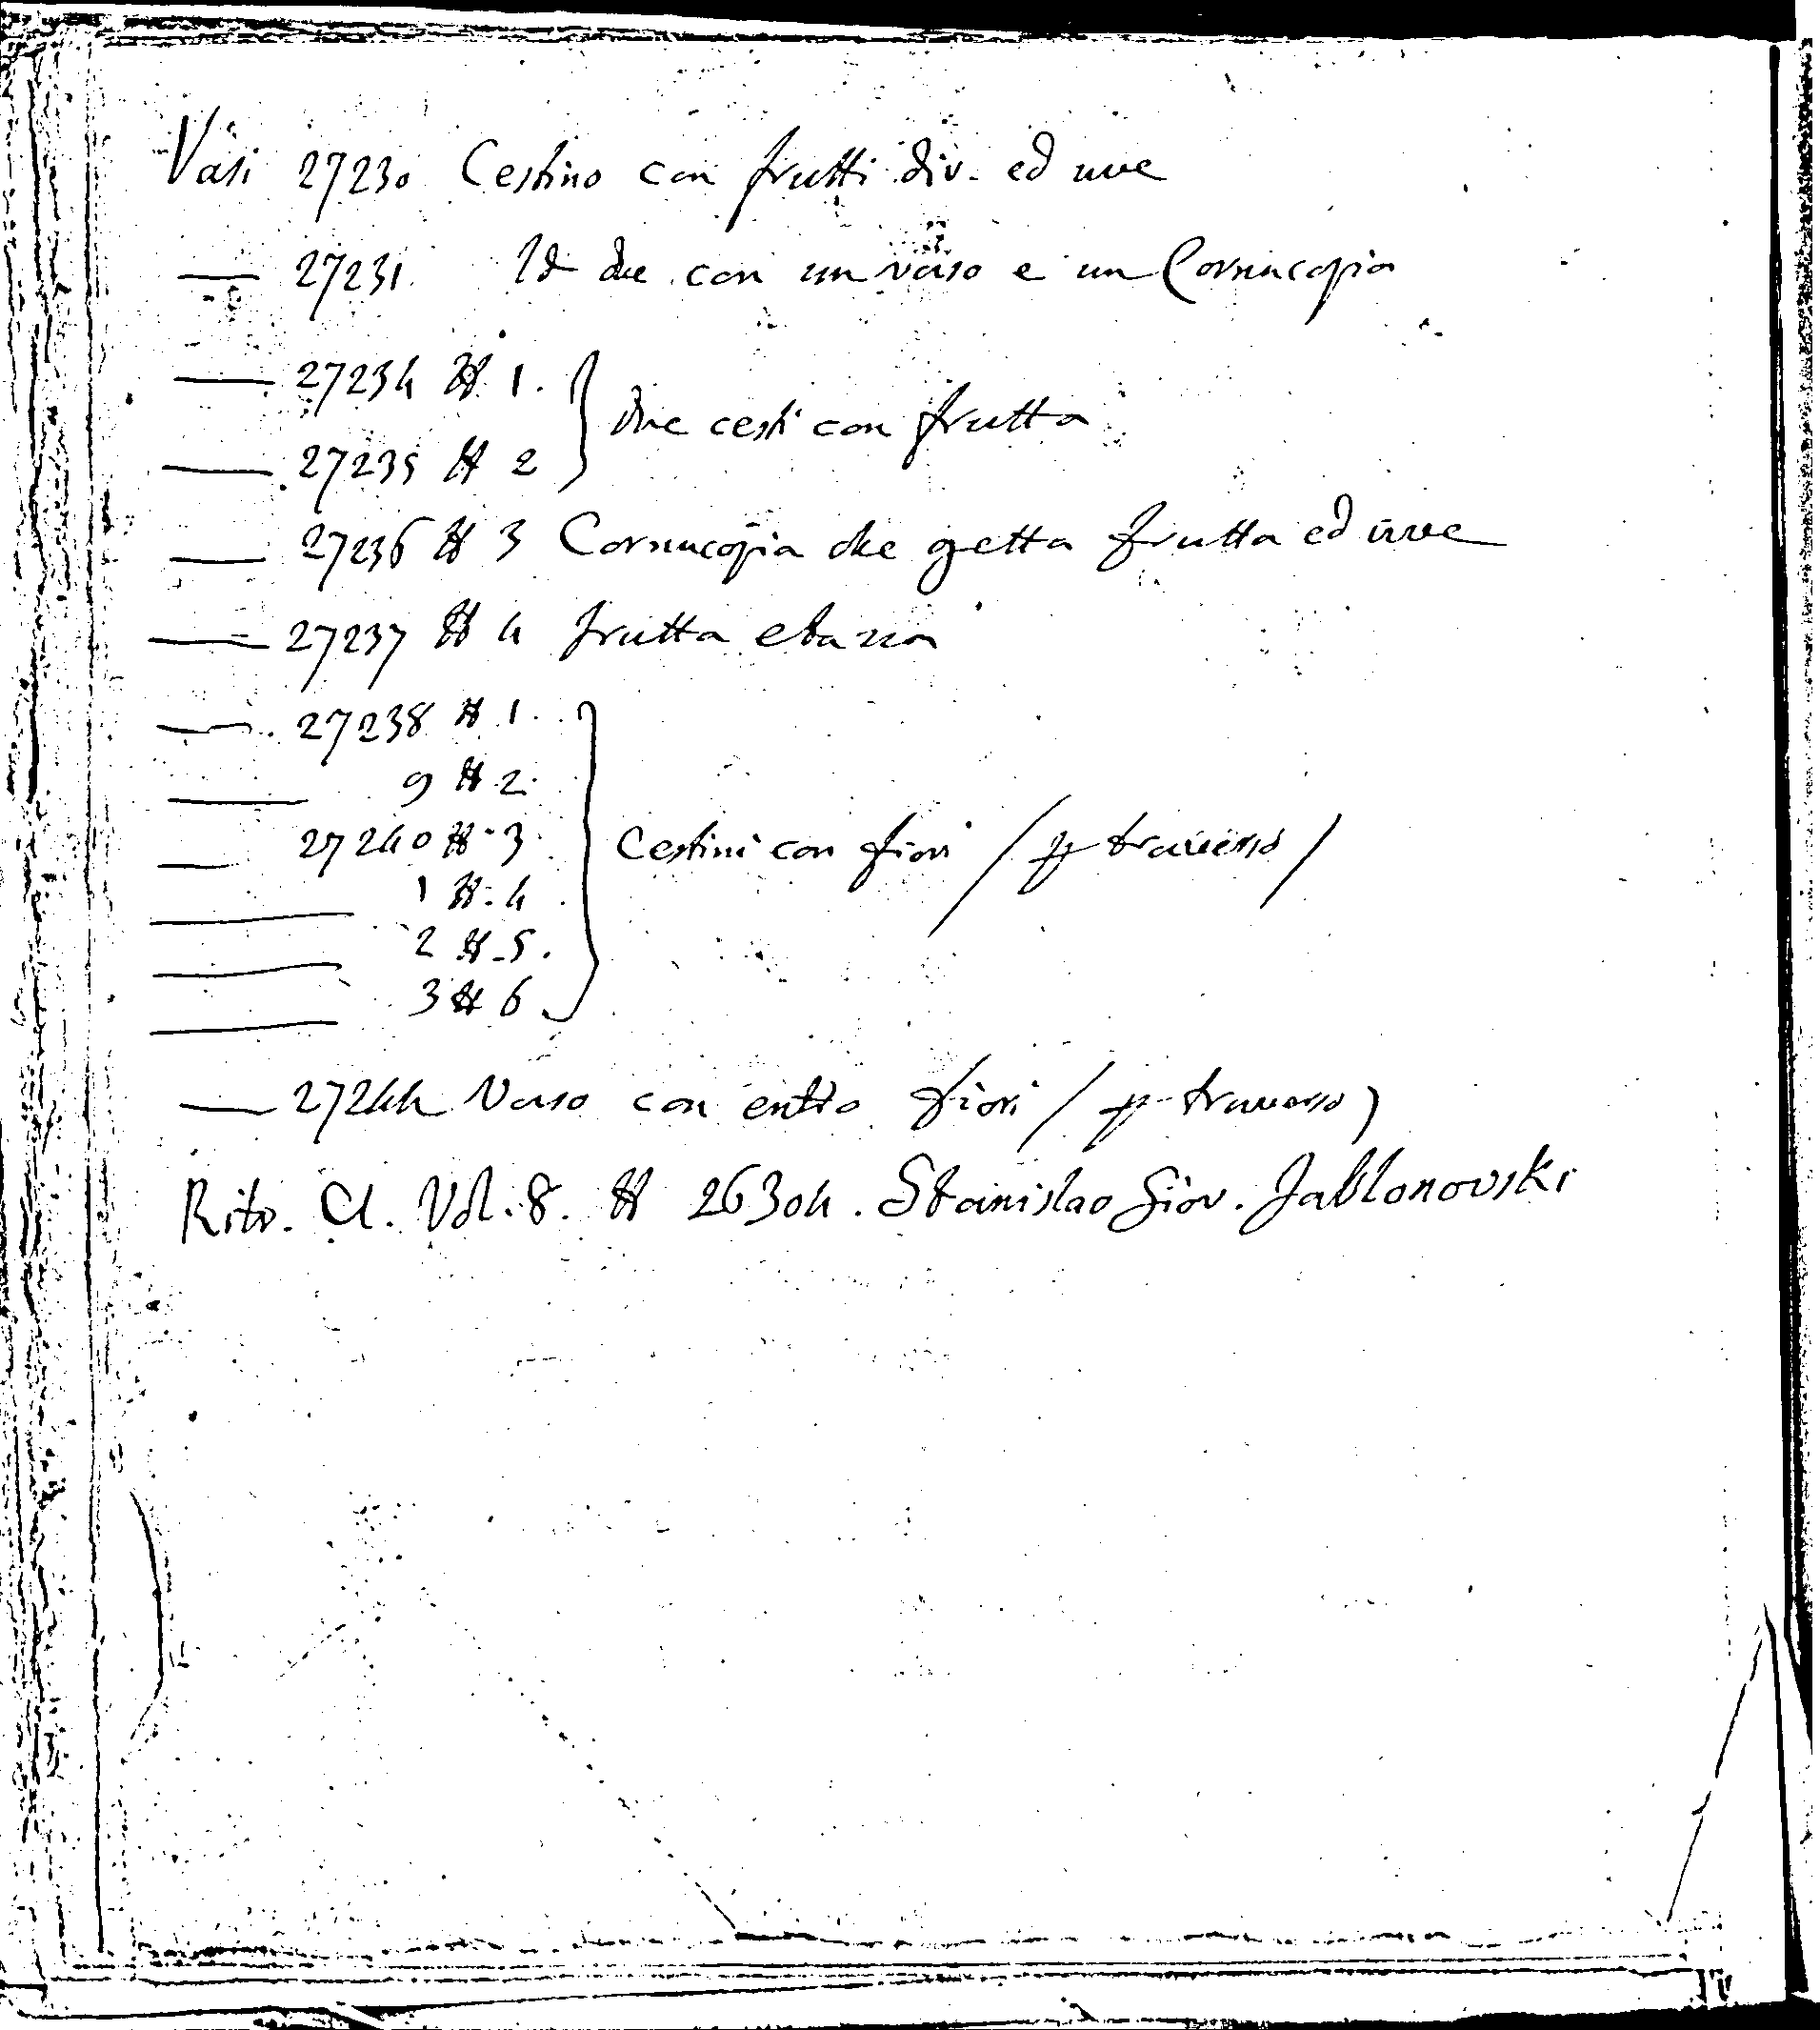 Vasi 27230 Cestino con frutti div. ed uve
— 27231. Id due con un vaso e un Cornucopia
— 27234 # 1.
Due cesti con frutta
— 27235 # 2
— 27236 # 3 Cornucopia che getta frutta ed uve
— 27237 # 4 frutta e tazza
— 27238 # 1.
— 9 # 2.
— 27240 # 3 Cestini con fiori / p traverso /
— 1 # 4
— 2 # 5.
— 3 # 6
— 27244 Vaso con entro fiori / p traverso )
Ritr. Cl. Vol. 8. # 26304. Stanislao Giov. Jablonovski